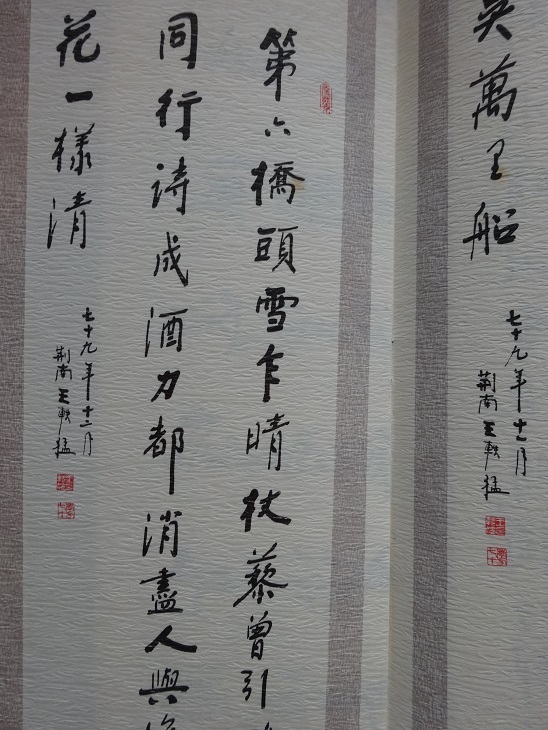 吳萬里船
七十九年十二月
荆南王軼猛
第六橋頭雪乍晴杖藜曾引
同行詩成酒力都消盡人與
花一樣清
七十九年十二月
荆南王軼猛